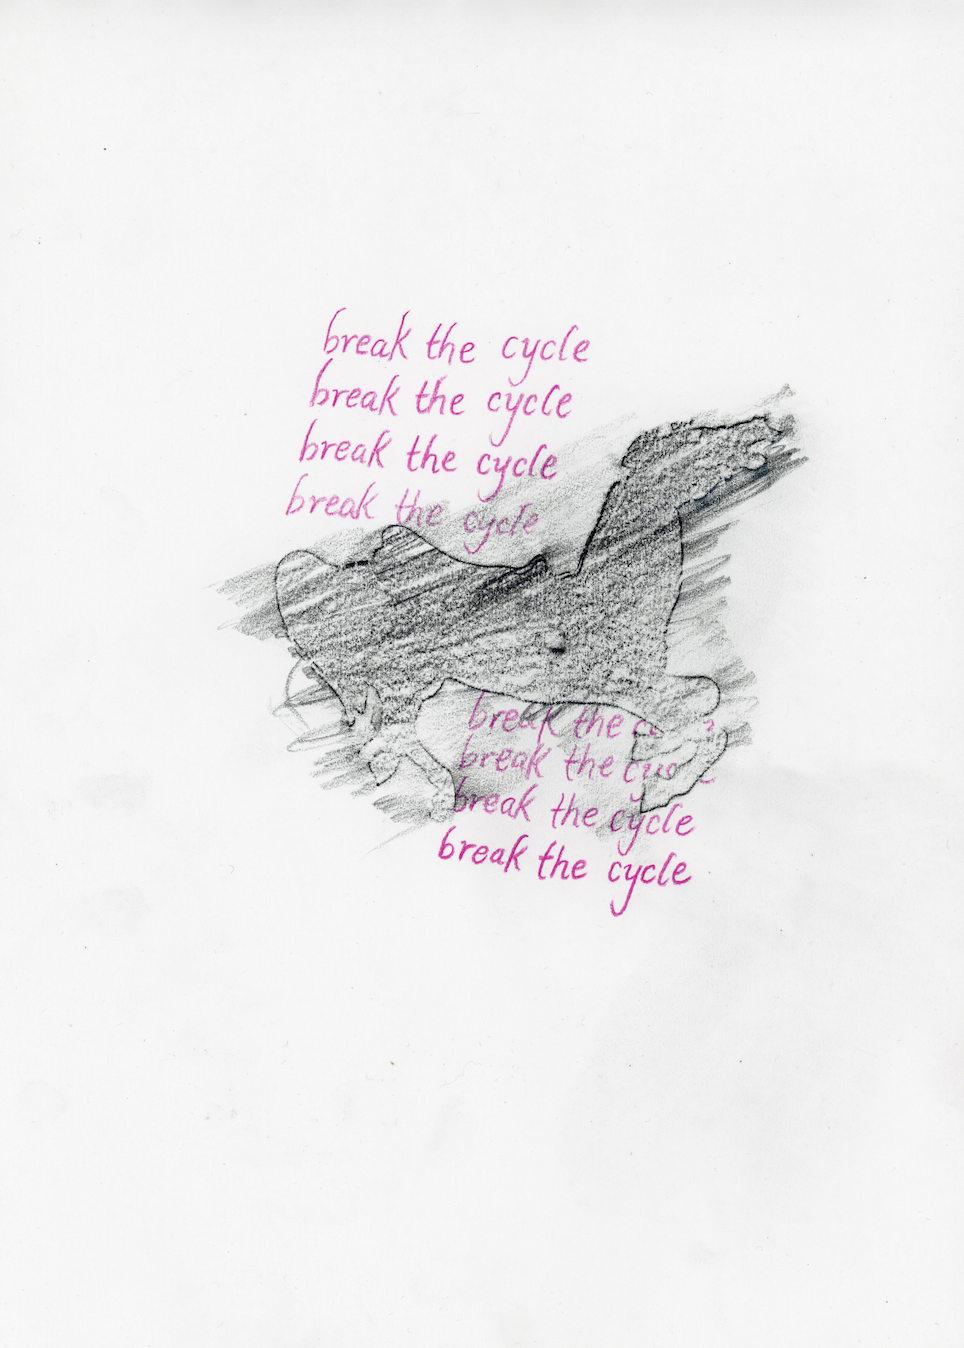 break the cycle
break the cycle
break the cycle
break the cycle
break the
break the
break the cycle
break the cycle